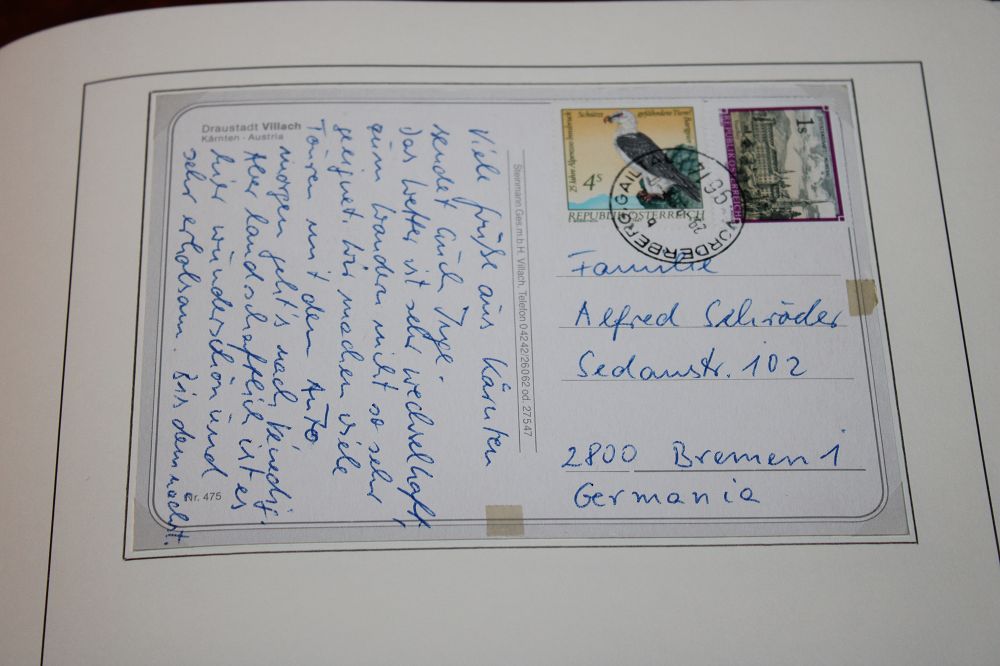 Draustadt Villach
Kärnten - Austria
Viele Grüße aus Kärnten
sendet Euch Inge.
Das Wetter ist sehr wechselhaft,
zum wandern nicht so sehr
geeignet. Wir machen viele
Touren mit dem Auto
morgen geht's nach Venedig.
Aber landschaftlich ist es
hier wunderschön und
sehr erholsam. Bis demnächst.
Nr. 475
Steinmann Ges.m.b.H. Villach, Telefon 04242/26062 od. 27547
25 Jahre Alpenzoo Innsbruck
Schützt gefährdete Tiere!
4s
REPUBLIK ÖSTERREICH
1s
REPUBLIK ÖSTERREICH
VORDERBERG, GAILTAL
Familie
Alfred Schröder
Sedanstr. 102
2800 Bremen 1
Germania